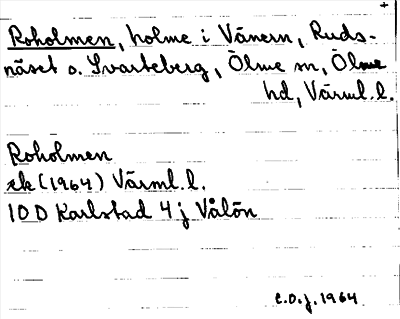 +
Roholmen, holme i Vänern, Ruds-
näset o. Svarteberg, Ölme sn, Ölme
hd, Värml.l.
Roholmen
ek (1964) Värml.l.
10 D Karlstad 4 j Vålön
C.O.j. 1964